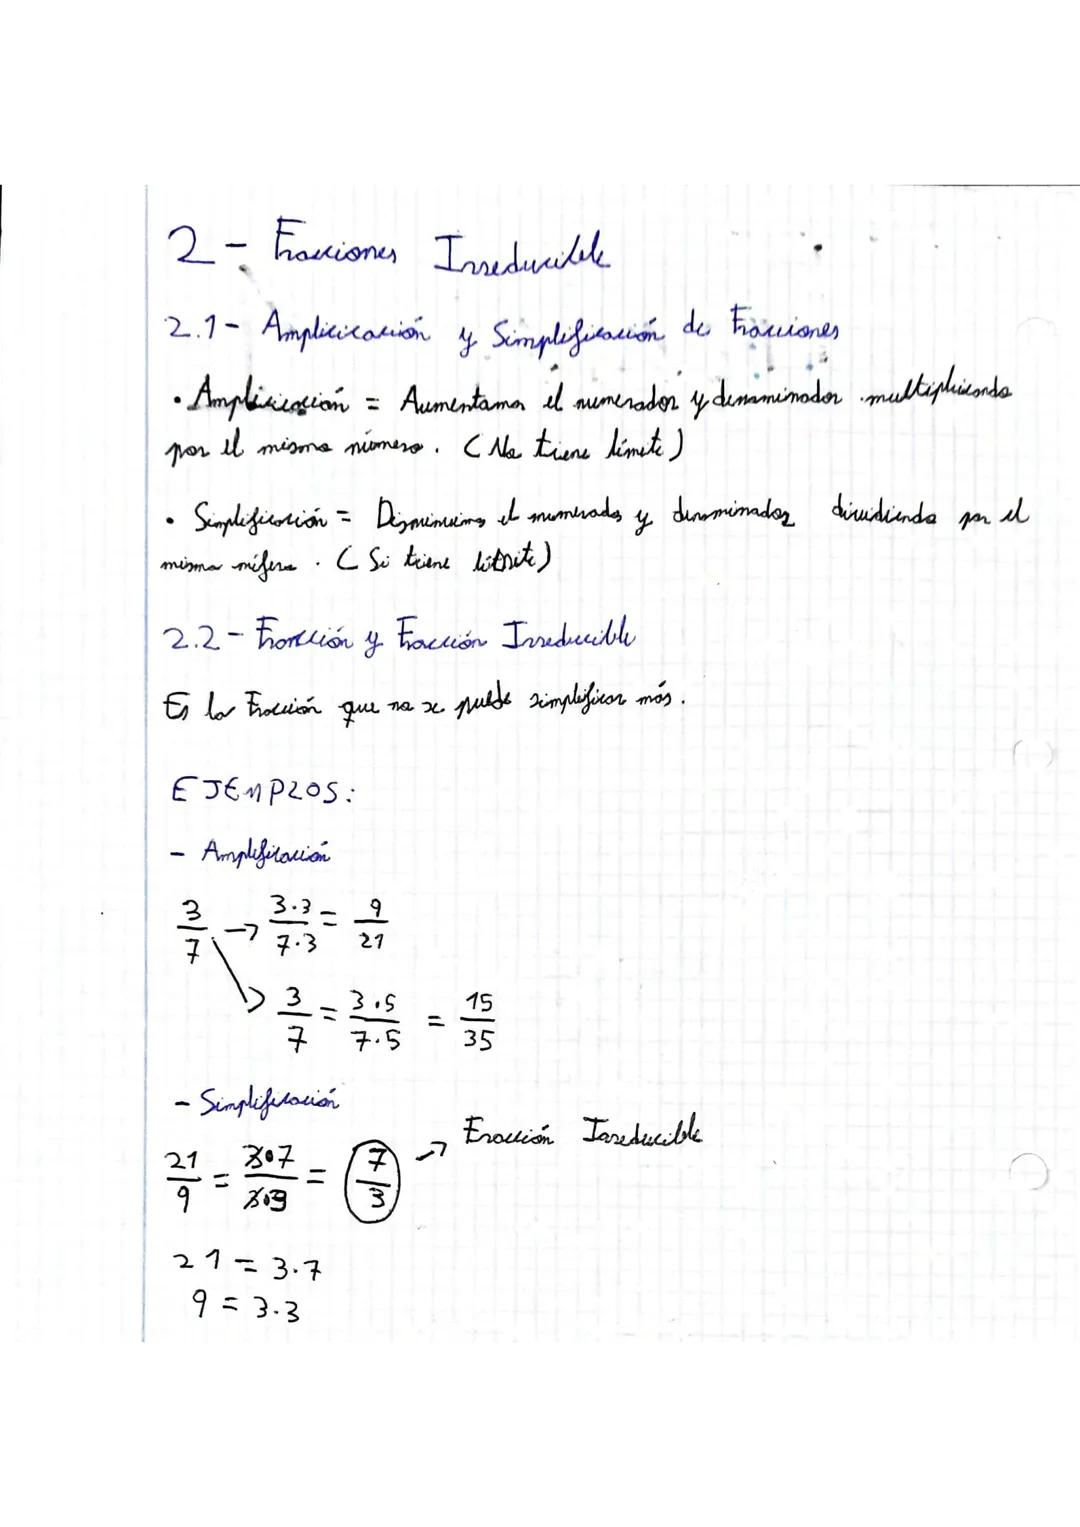 2 - Fracciones Irreducible
2.1 - Ampliicación y Simplificación de Fracciones
· Ampliicación = Aumentamos el numerador y denominador multiplicando
por el mismo número. (No tiene límite)
· Simplificación = Disminuims el numerador y denominador dividiendo por el
mismo número. (Si tiene límite)
2.2 - Fracción y Fracción Irreducible
Es la Fracción que no se puede simplificar más.
EJEMPLOS:
- Amplificación
3/7 → 3·3/7·3 = 9/21
→ 3/7 = 3·5/7·5 = 15/35
- Simplificación
21/9 = 3·7/3·3 = 7/3 → Fracción Irreducible
21 = 3·7
9 = 3·3